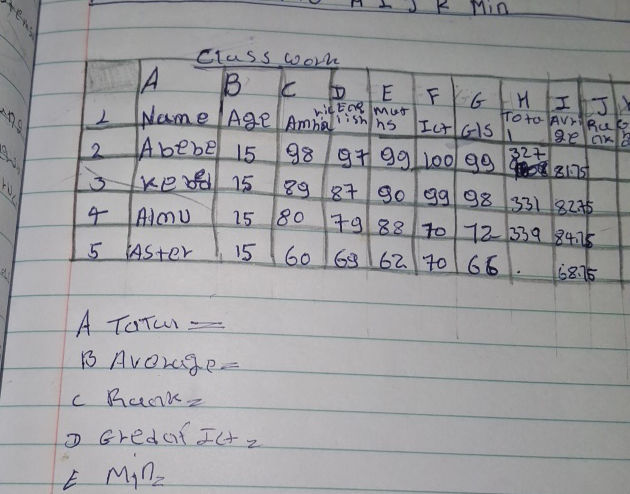 A I J K Min
Class work
A B C D E F G H I J
1 Name Age Amharic English Maths Ict G/S Total Avrage Rank
2 Abebe 15 98 97 99 100 99 327 81.75
3 Kebed 15 89 87 90 99 98 331 82.75
4 Almu 15 80 79 88 70 72 339 84.75
5 Aster 15 60 69 62 70 66 . 68.75
A Total =
B Average =
C Rank =
D Gred of Ict =
E Min =